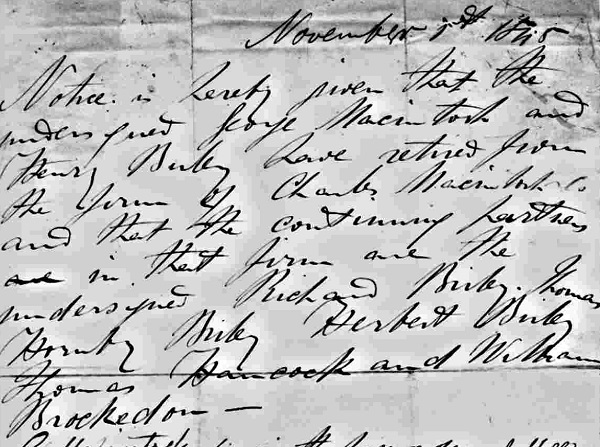 November 1st 1845
Notice is hereby given that the
undersigned George Macintosh and
Henry Birley have retired from
the firm of Charles Macintosh & Co
and that the continuing partners
are in that firm are the
undersigned Richard Birley, Thomas
Hornby Birley Herbert Birley
Thomas Hancock and William
Brockedon —